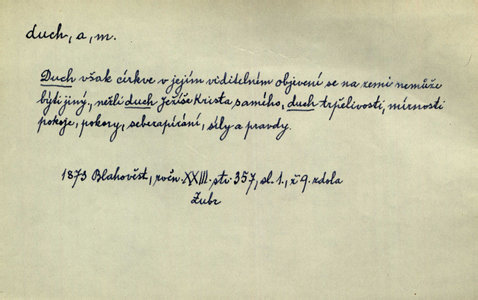 duch, a, m.
Duch však církve v jejím viditelném objevení se na zemi nemůže
býti jiný, nežli duch Ježíše Krista samého, duch trpělivosti, mírnosti
pokoje, pokory, sebezapírání, síly a pravdy.
1873 Blahověst, ročn. XXIII. str. 357, sl. 1., ř 9. zdola
Zubr